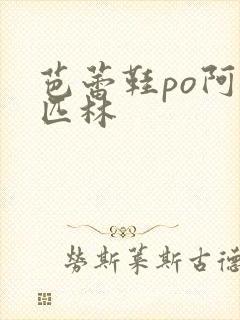 芭蕾鞋po阿
匹林
劳斯莱斯古德